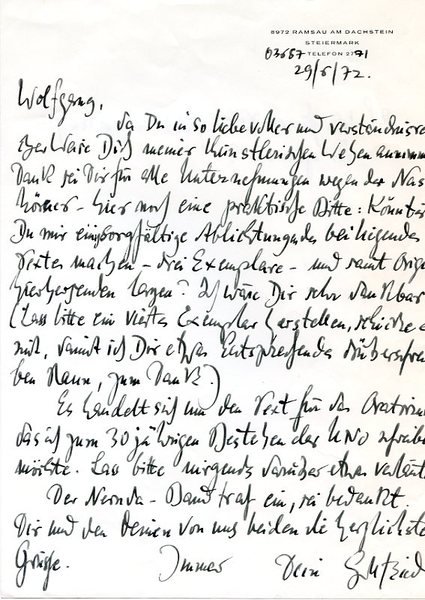 8972 RAMSAU AM DACHSTEIN
STEIERMARK
03687 TELEFON 2771
29/6/72.
Wolfgang,
da Du in so liebevoller und verständnisvo
Dich meiner künstlerischen Wesen annimm
Dank sei Dir für alle Unternehmungen wegen der Nas
hörner - hier noch eine praktische Bitte: Könntes
Du mir eine sorgfältige Ablichtung des beiliegenden
Textes machen - drei Exemplare - und samt Orig
hierhersenden lassen? Ich wäre Dir sehr dankbar
(Lass bitte ein viertes Exemplar herstellen, schicke e
mit, damit ich Dir etwas Entsprechendes drüberschrei
ben kann, zum Dank.)
Es handelt sich um den Text für das Oratorium
das ich zum 30 jährigen Bestehen der UNO schreibe
möchte. Lass bitte nirgends darüber etwas verlaut
Der Neruda - Band traf ein, sei bedankt.
Dir und den Deinen von uns beiden die herzlichste
Grüße. Immer Dein